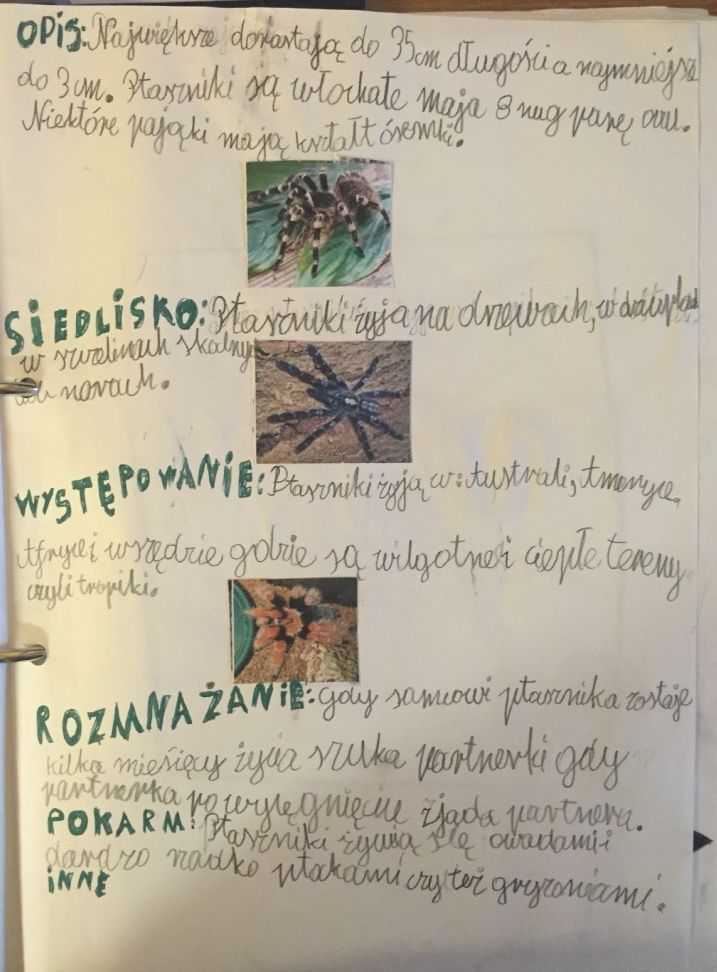 OPIS: Największe dorastają do 35cm długości a najmniejsze
do 3 cm. Ptaszniki są włochate maja 8 nug parę oczu.
Niektóre pająki mają kształt ósemki.
SIEDLISKO: Ptaszniki żyja na drzewach, w
w szczelinach skalnych
lub norach.
WYSTĘPOWANIE: Ptaszniki żyją w: Australi, Ameryce,
Afryce i wszędzie gdzie są wilgotne i ciepłe tereny
czyli tropiki.
ROZMNAŻANIE: gdy samcowi ptasznika zostaje
kilka miesięcy życia szuka partnerki gdy
partnerka po wylęgnięciu zjada partnera.
POKARM: Ptaszniki żywią się owadami i
bardzo rzadko ptakami czy też gryzoniami.
INNE